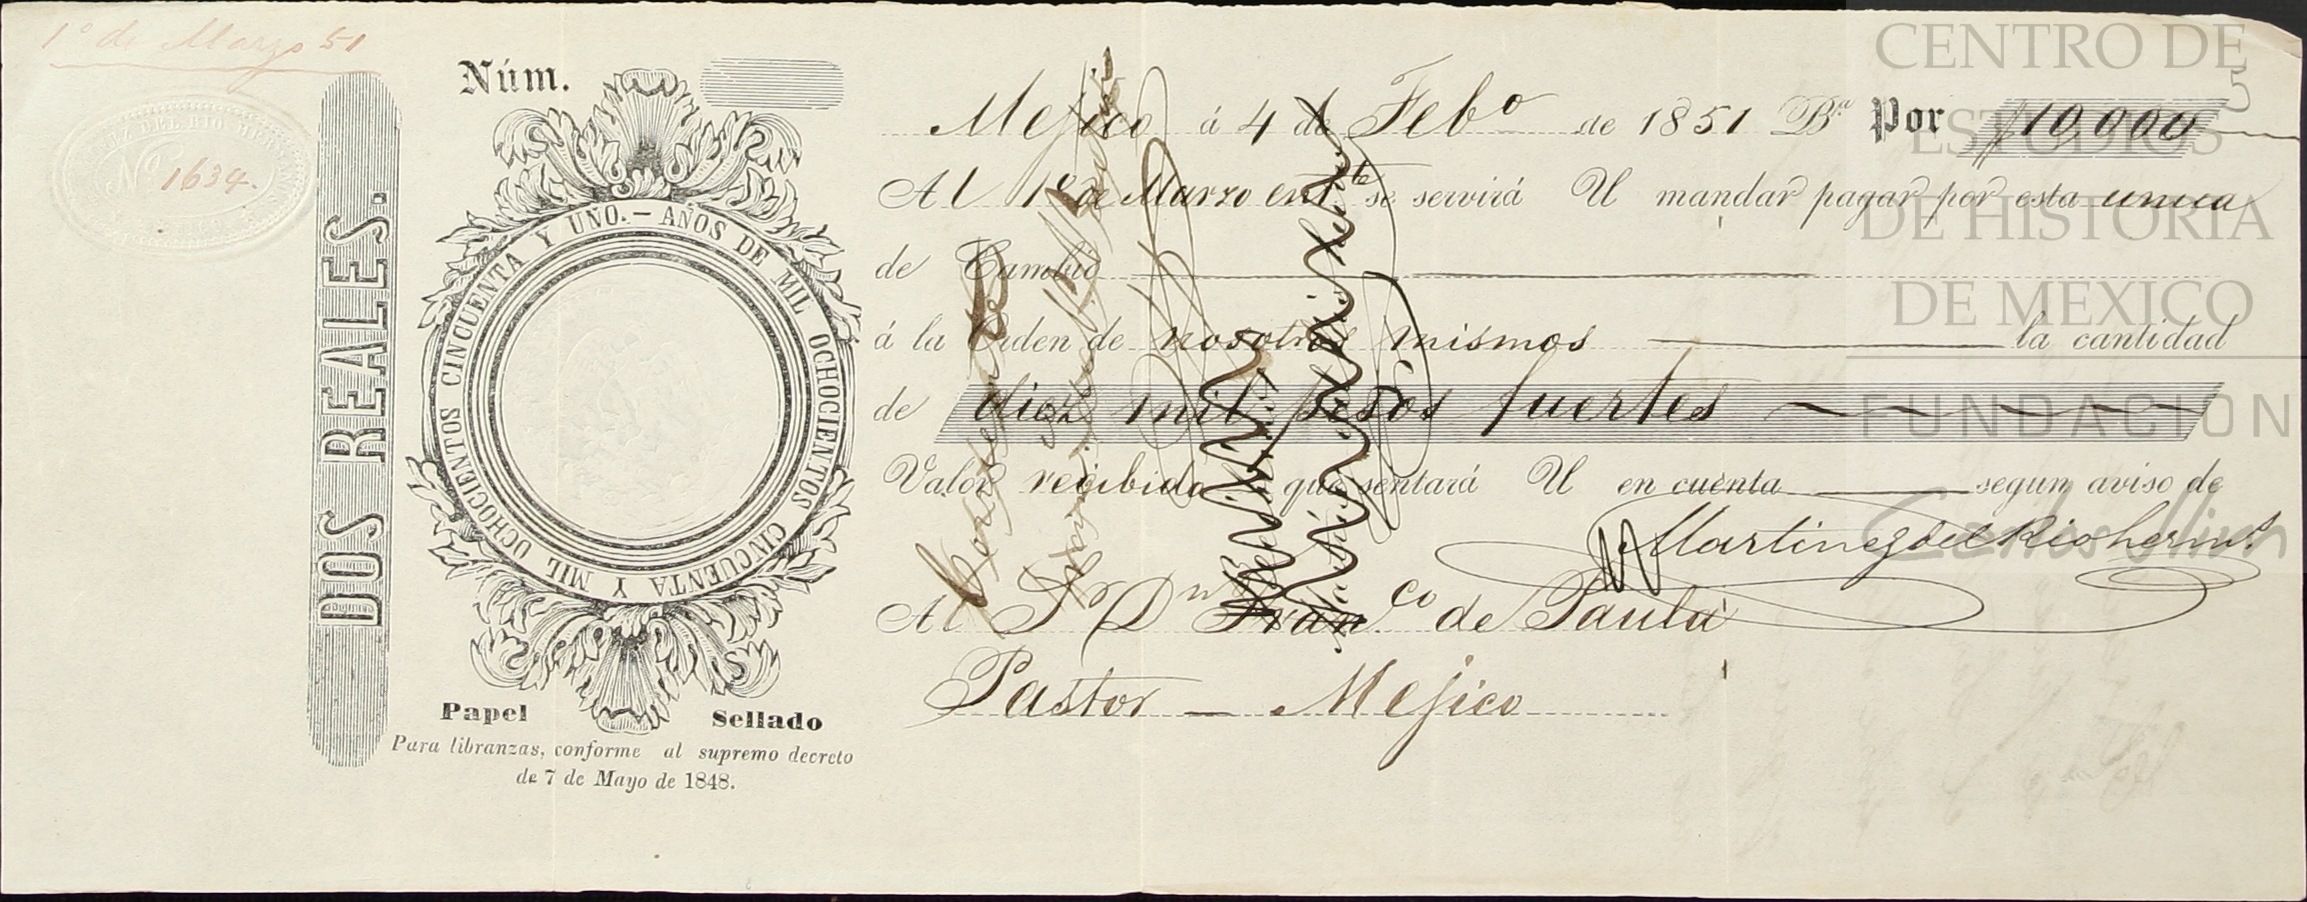 1º de Marzo 51
Nº 1634.
DOS REALES.
Núm.
AÑOS DE MIL OCHOCIENTOS CINCUENTA Y MIL OCHOCIENTOS CINCUENTA Y UNO.—
Papel Sellado
Para libranzas, conforme al supremo decreto
de 7 de Mayo de 1848.
Mejico á 4 de Febº de 1851 Bª Por $10,000
Al 1º de Marzo entte se servirá U mandar pagar por esta unica
de Cambio
á la Orden de nosotros mismos la cantidad
de diez mil pesos fuertes
Valor recibido que sentará U en cuenta segun aviso de
Martinez del Rio hermˢ
Al Sºr Dn Franco de Paula
Pastor — Mejico
CENTRO DE
ESTUDIOS
DE HISTORIA
DE MEXICO
FUNDACION
Carlos Slim